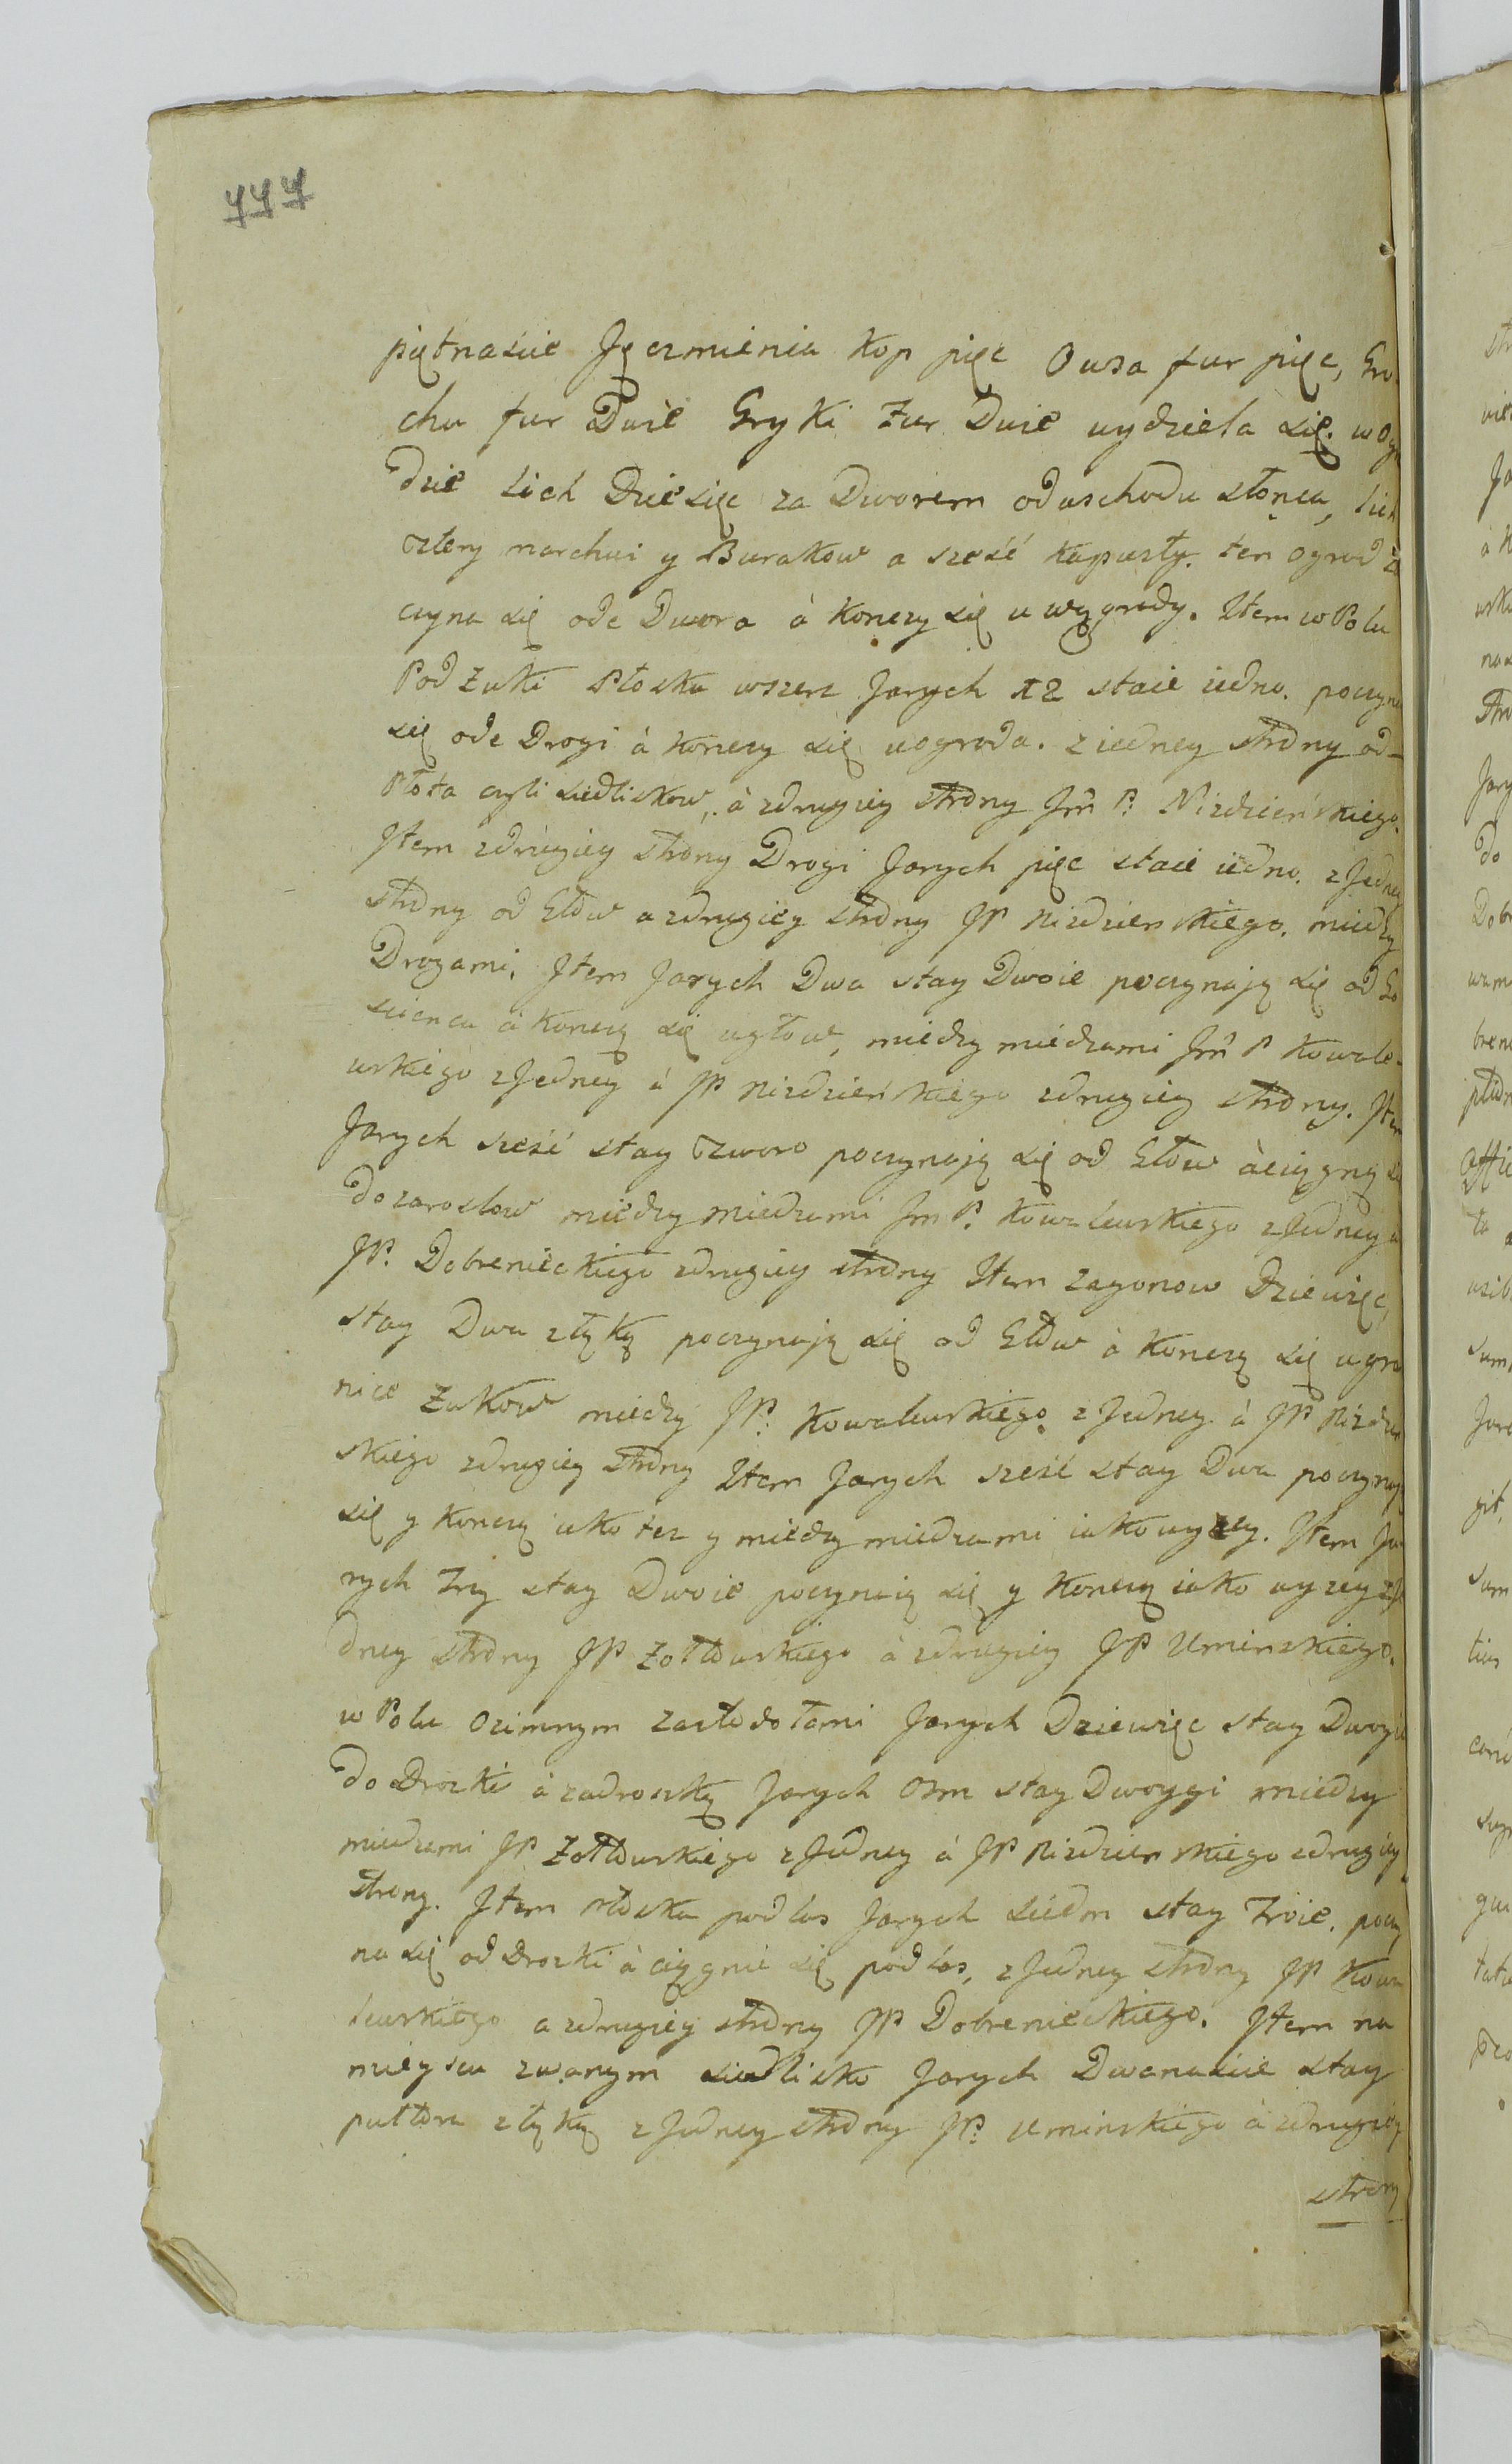 777
piętnaście Jęczmienia Kop pięc Owsa fur pięc, Gro-
chu fur Dwie Gryki Fur Dwie wydziela się. w Og
dzie lich Dziesięc za Dworem od wschodu słonca, lich
cztery marchwi y Burakow a sześć kapusty. ten ogrod za
czyna się ode Dwora à Konczy się u wygrody. Item w Polu
Pod Zuki Płoska wszerz Jarych 12 staie iedno. poczyna
się ode Drogi à Konczy się u ogroda. z iedney strony od-
Płota czyli siedliskow, à zdrugiey strony Jm̃ P. Nizdzieńskiego.
Item zdrugiey strony Drogi Jarych pięc staie iedno. z Jedney
strony od Głów a zdrugiey strony JP Nizdzienskiego. między
Drogami, Item Jarych Dwa stay Dwoie poczynają się od Go
scienca à Konczą się u głów, między miedzami Jm̃ P Kowale-
wskiego z Jedney à JP Nizdzieńskiego zdrugiey strony. Item
Jarych sześć stay czworo poczynają się od Głów à ciągną się
do zarosłow między miedzami Jm P. Kowalewskiego z Jedney a
JP. Dobrenieckiego zdrugiey strony Item zagonow Dziewięc,
stay Dwa z łyką poczynają się od Głów à Konczą się u gra
nice Zuków między JP. Kowalewskiego z Jedney à JP Nizdzień
skiego zdrugiey strony Item Jarych sześć stay Dwa poczynaią
się y Konczą iako też y między miedzami iako wyzey. Item Ja
rych Trzy stay Dwoie poczynaią się y Konczą iako wyzey z Je
dney strony JP Zołtowskiego à zdrugiey JP Uminskiego.
w Polu ozimnym zastodołami Jarych Dziewięc stay Dwoyie
do Drozki à zadroszką Jarych osm stay Dwoygi między
miedzami JP Zołtowskiego z Jedney à JP Nizdzienskiego zdrugiey
strony. Item Płoska pod las Jarych siedm stay Troie. poczy
na się od Drozki à ciągnie się pod las, z Jedney strony JP Kowa
lewskiego a zdrugiey strony JP Dobrenieckiego. Item na
mieyscu zwanym siedlisko Jarych Dwanaście stay
puttora z łyką z Jedney strony JP. Uminskiego à zdrugiey
strony